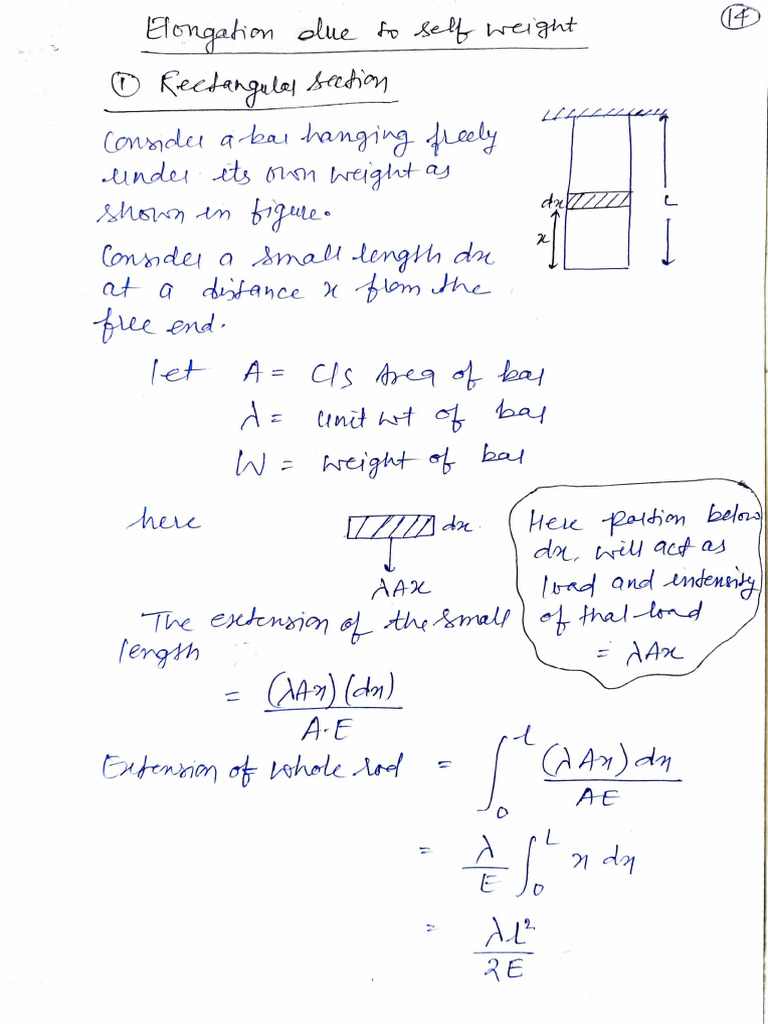 14
Elongation due to self weight
① Rectangular section
Consider a bar hanging freely
under its own weight as
shown in figure.
dx
L
x
Consider a small length dx
at a distance x from the
free end.
let A = C/S Area of bar
λ = unit wt of bar
W = weight of bar
here
dx
λAx
Here portion below
dx, will act as
load and intensity
of that load
= λAx
The extension of the small
length
= (λAx)(dx) / A·E
Extension of whole rod = ∫₀ᴸ (λAx)dx / AE
= λ/E ∫₀ᴸ x dx
= λL² / 2E